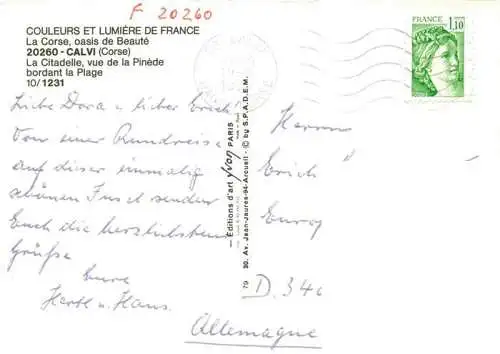 F 20260
COULEURS ET LUMIÈRE DE FRANCE
La Corse, oasis de Beauté
20260 - CALVI (Corse)
La Citadelle, vue de la Pinède
bordant la Plage
10/1231
FRANCE
1,10
Liebe Dora u lieber Erich!
Von einer Rundreise
auf dieser einmalig
schönen Insel senden
Euch die herzlichsten
Grüße
Eure
Hertl u. Hans.
— Editions d'art yvon PARIS
30, Av. Jean-Jaurès-94-Arcueil - © by S.P.A.D.E.M.
79
Herrn
Erich
D. 346
Allemagne